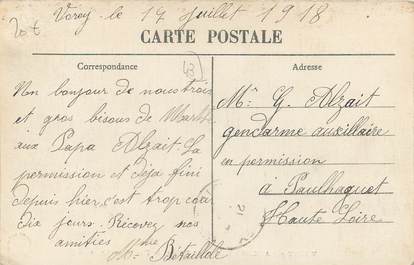 20€
Vorey le 17 Juillet 1918
CARTE POSTALE
Correspondance
43
Adresse
Un bonjour de nous trois
et gros bisous de Marthe
aux Papa Alzait La
permission et déja fini
depuis hier, c'est trop court
dix jours. Recevez nos
amitiés
Mme Bétailole
Mr G. Alzait
gendarme auxillaire
en permission
à Paulhaguet
Haute Loire